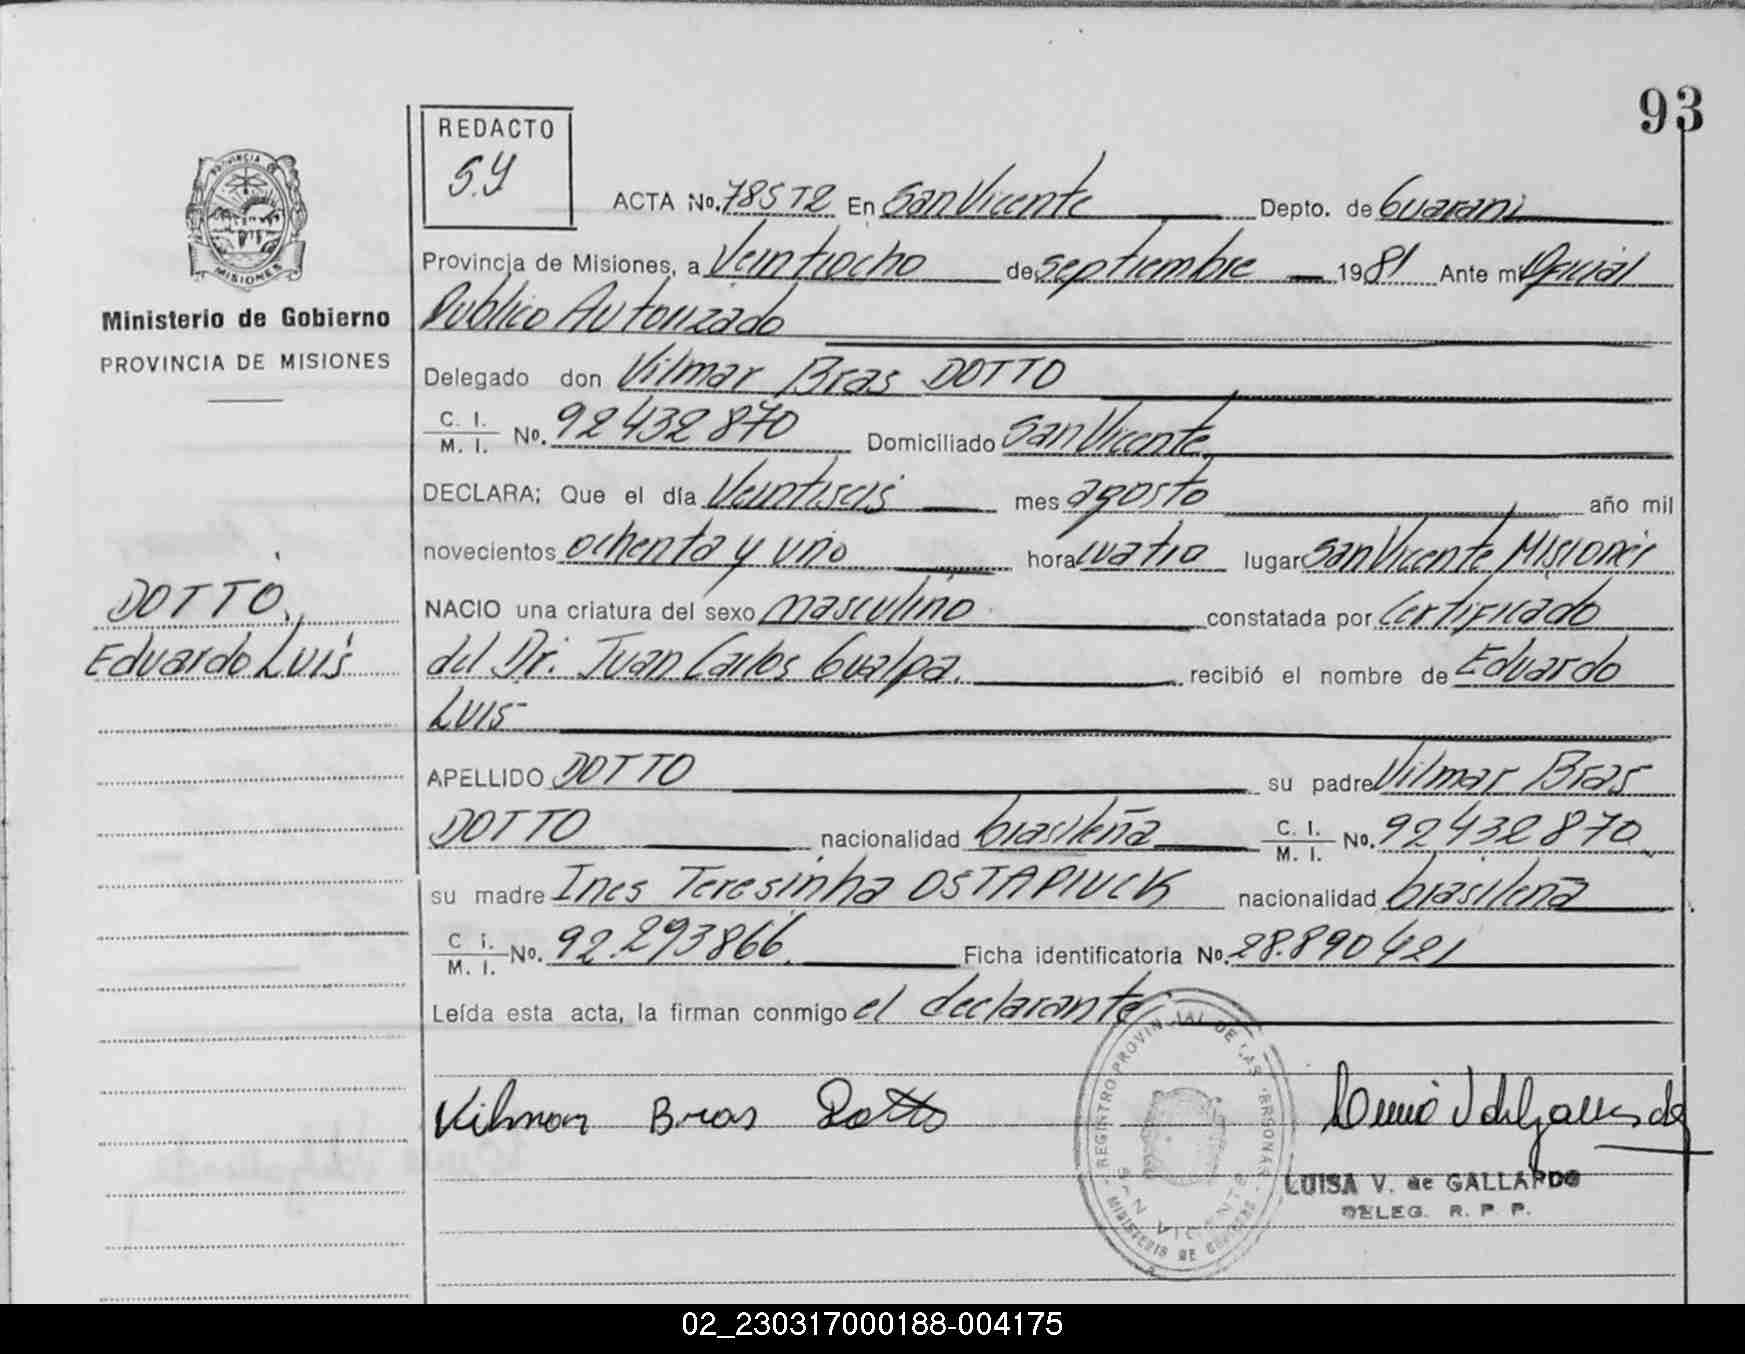 93
REDACTO
S.Y
PROVINCIA DE
MISIONES
Ministerio de Gobierno
PROVINCIA DE MISIONES
ACTA No. 785 T2 En San Vicente Depto. de Guarani
Provincia de Misiones, a Veintiocho de septiembre 1981 Ante mi Oficial
Publico Autorizado
Delegado don Vilmar Bras DOTTO
C. I. / M. I. No. 92432870 Domiciliado San Vicente
DECLARA; Que el día Veintiseis mes agosto año mil
novecientos ochenta y uno hora cuatro lugar San Vicente Misiones
DOTTO
Eduardo Luis
NACIO una criatura del sexo masculino constatada por Certificado
del Dr. Juan Carlos Gualpa. recibió el nombre de Eduardo
Luis
APELLIDO DOTTO su padre Vilmar Bras
DOTTO nacionalidad brasileña C. I. / M. I. No. 92432870
su madre Ines Teresinha OSTAPIUCK nacionalidad brasileña
C i. / M. I. No. 92.293866. Ficha identificatoria No. 28.890421
Leída esta acta, la firman conmigo el declarante
Vilmar Bras Dotto
REGISTRO PROVINCIAL DE LAS PERSONAS
SAN VICENTE
MINISTERIO DE GOBIERNO
LUISA V. de GALLARDO
DELEG. R. P. P.
02_230317000188-004175